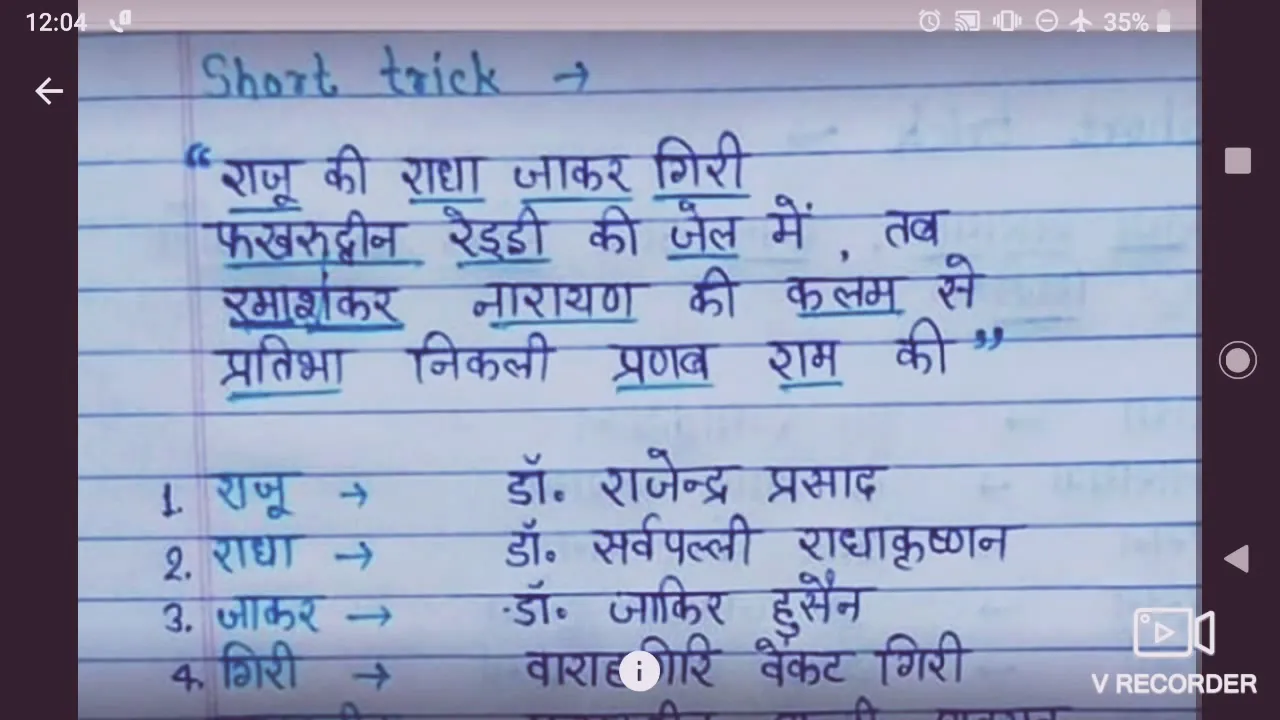 12:04
35%
Short trick →
“राजू की राधा जाकर गिरी
फखरुद्दीन रेड्डी की जेल में, तब
रमाशंकर नारायण की कलम से
प्रतिभा निकली प्रणब राम की”
1. राजू → डॉ. राजेन्द्र प्रसाद
2. राधा → डॉ. सर्वपल्ली राधाकृष्णन
3. जाकर → डॉ. जाकिर हुसैन
4. गिरी → वाराहगिरि वेंकट गिरी
V RECORDER